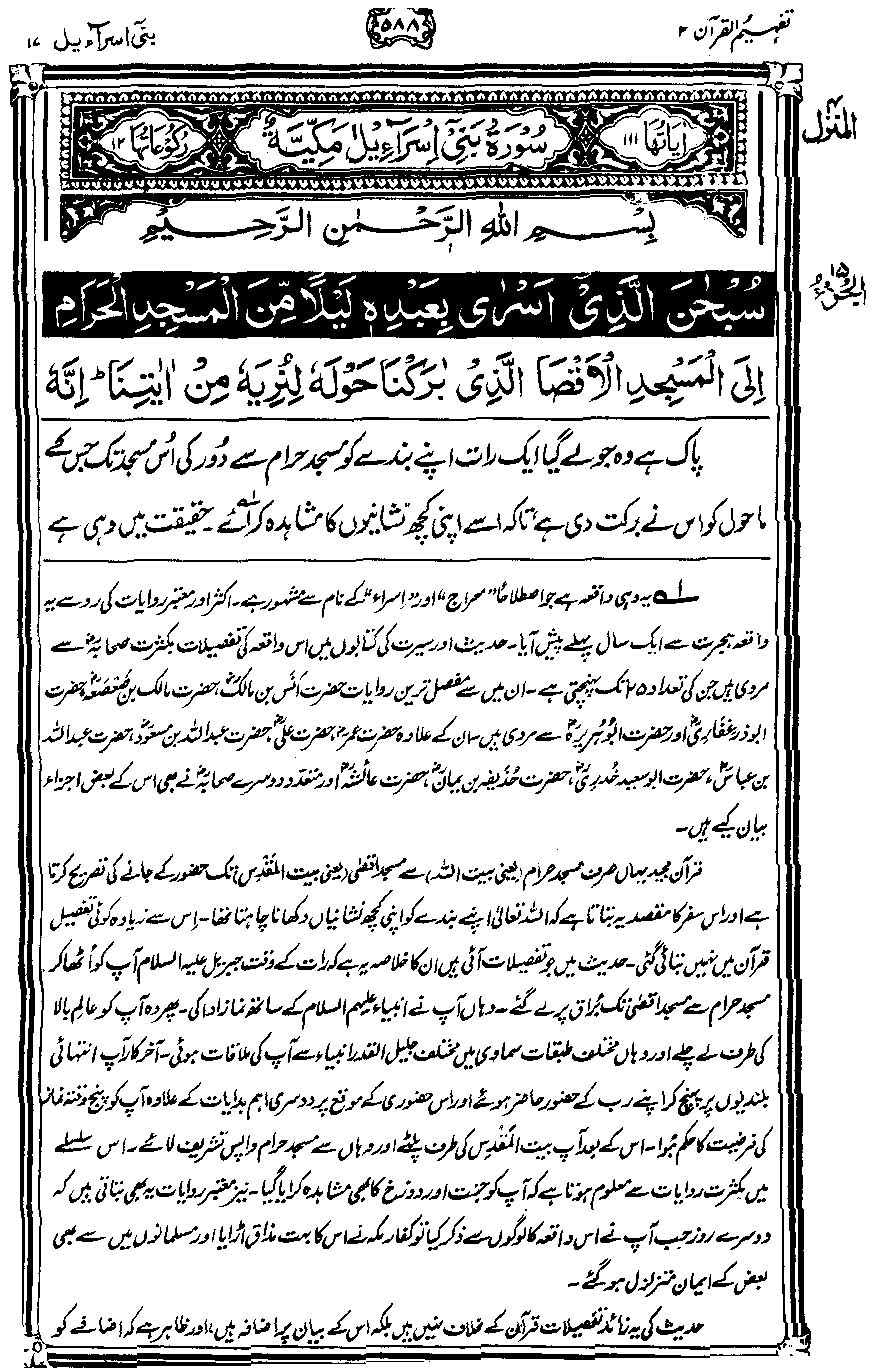 تفہیم القرآن ۲
۵۸۸
بنی اسرآءیل ۱۷
المنزل ۴
اٰیاتها ۱۱۱
سُوْرَةُ بَنِیْٓ اِسْرَآءِیْلَ مَکِّیَّةٌ
رکوعاتها ۱۲
بِسْمِ اللهِ الرَّحْمٰنِ الرَّحِیْمِ
الجزء ۱۵
سُبْحٰنَ الَّذِیْٓ اَسْرٰی بِعَبْدِهٖ لَیْلًا مِّنَ الْمَسْجِدِ الْحَرَامِ
اِلَی الْمَسْجِدِ الْاَقْصَا الَّذِیْ بٰرَکْنَا حَوْلَهٗ لِنُرِیَهٗ مِنْ اٰیٰتِنَا ؕ اِنَّهٗ
پاک ہے وہ جو لے گیا ایک رات اپنے بندے کو مسجد حرام سے دُور کی اُس مسجد تک جس کے
ماحول کو اس نے برکت دی ہے، تاکہ اسے اپنی کچھ نشانیوں کا مشاہدہ کرائے۔ حقیقت میں وہی ہے
۱؎ یہ وہی واقعہ ہے جو اصطلاحًا ”معراج“ اور ”اِسراء“ کے نام سے مشہور ہے۔ اکثر اور معتبر روایات کی رو سے یہ
واقعہ ہجرت سے ایک سال پہلے پیش آیا۔ حدیث اور سیرت کی کتابوں میں اس واقعہ کی تفصیلات بکثرت صحابہؓ سے
مروی ہیں جن کی تعداد ۲۵ تک پہنچتی ہے۔ ان میں سے مفصل ترین روایات حضرت انَس بن مالکؓ، حضرت مالک بن صَعْصَعہؓ، حضرت
ابوذر غفاریؓ اور حضرت ابوہُریرہؓ سے مروی ہیں۔ ان کے علاوہ حضرت عمرؓ، حضرت علیؓ، حضرت عبداللہ بن مسعودؓ، حضرت عبداللہ
بن عباسؓ، حضرت ابوسعید خُدریؓ، حضرت حُذَیفہ بن یمانؓ، حضرت عائشہؓ اور متعدد دوسرے صحابہؓ نے بھی اس کے بعض اجزاء
بیان کیے ہیں۔
قرآن مجید یہاں صرف مسجد حرام (یعنی بیت اللہ) سے مسجد اقصٰی (یعنی بیت المَقْدِس) تک حضور کے جانے کی تصریح کرتا
ہے اور اس سفر کا مقصد یہ بتاتا ہے کہ اللہ تعالیٰ اپنے بندے کو اپنی کچھ نشانیاں دکھانا چاہتا تھا۔ اِس سے زیادہ کوئی تفصیل
قرآن میں نہیں بتائی گئی۔ حدیث میں جو تفصیلات آئی ہیں ان کا خلاصہ یہ ہے کہ رات کے وقت جبریل علیہ السلام آپ کو اُٹھا کر
مسجد حرام سے مسجد اقصیٰ تک بُراق پر لے گئے۔ وہاں آپ نے انبیاء علیہم السلام کے ساتھ نماز ادا کی۔ پھر وہ آپ کو عالم بالا
کی طرف لے چلے اور وہاں مختلف طبقات سماوی میں مختلف جلیل القدر انبیاء سے آپ کی ملاقات ہوئی۔ آخر کار آپ انتہائی
بلندیوں پر پہنچ کر اپنے رب کے حضور حاضر ہوئے اور اس حضوری کے موقع پر دوسری اہم ہدایات کے علاوہ آپ کو پنج وقتہ نماز
کی فرضیت کا حکم ہُوا۔ اس کے بعد آپ بیت المَقْدِس کی طرف پلٹے اور وہاں سے مسجد حرام واپس تشریف لائے۔ اس سلسلے
میں بکثرت روایات سے معلوم ہوتا ہے کہ آپ کو جنت اور دوزخ کا بھی مشاہدہ کرایا گیا۔ نیز معتبر روایات یہ بھی بتاتی ہیں کہ
دوسرے روز جب آپ نے اس واقعہ کا لوگوں سے ذکر کیا تو کفار مکہ نے اس کا بہت مذاق اڑایا اور مسلمانوں میں سے بھی
بعض کے ایمان متزلزل ہو گئے۔
حدیث کی یہ زائد تفصیلات قرآن کے خلاف نہیں ہیں بلکہ اس کے بیان پر اضافہ ہیں، اور ظاہر ہے کہ اضافے کو